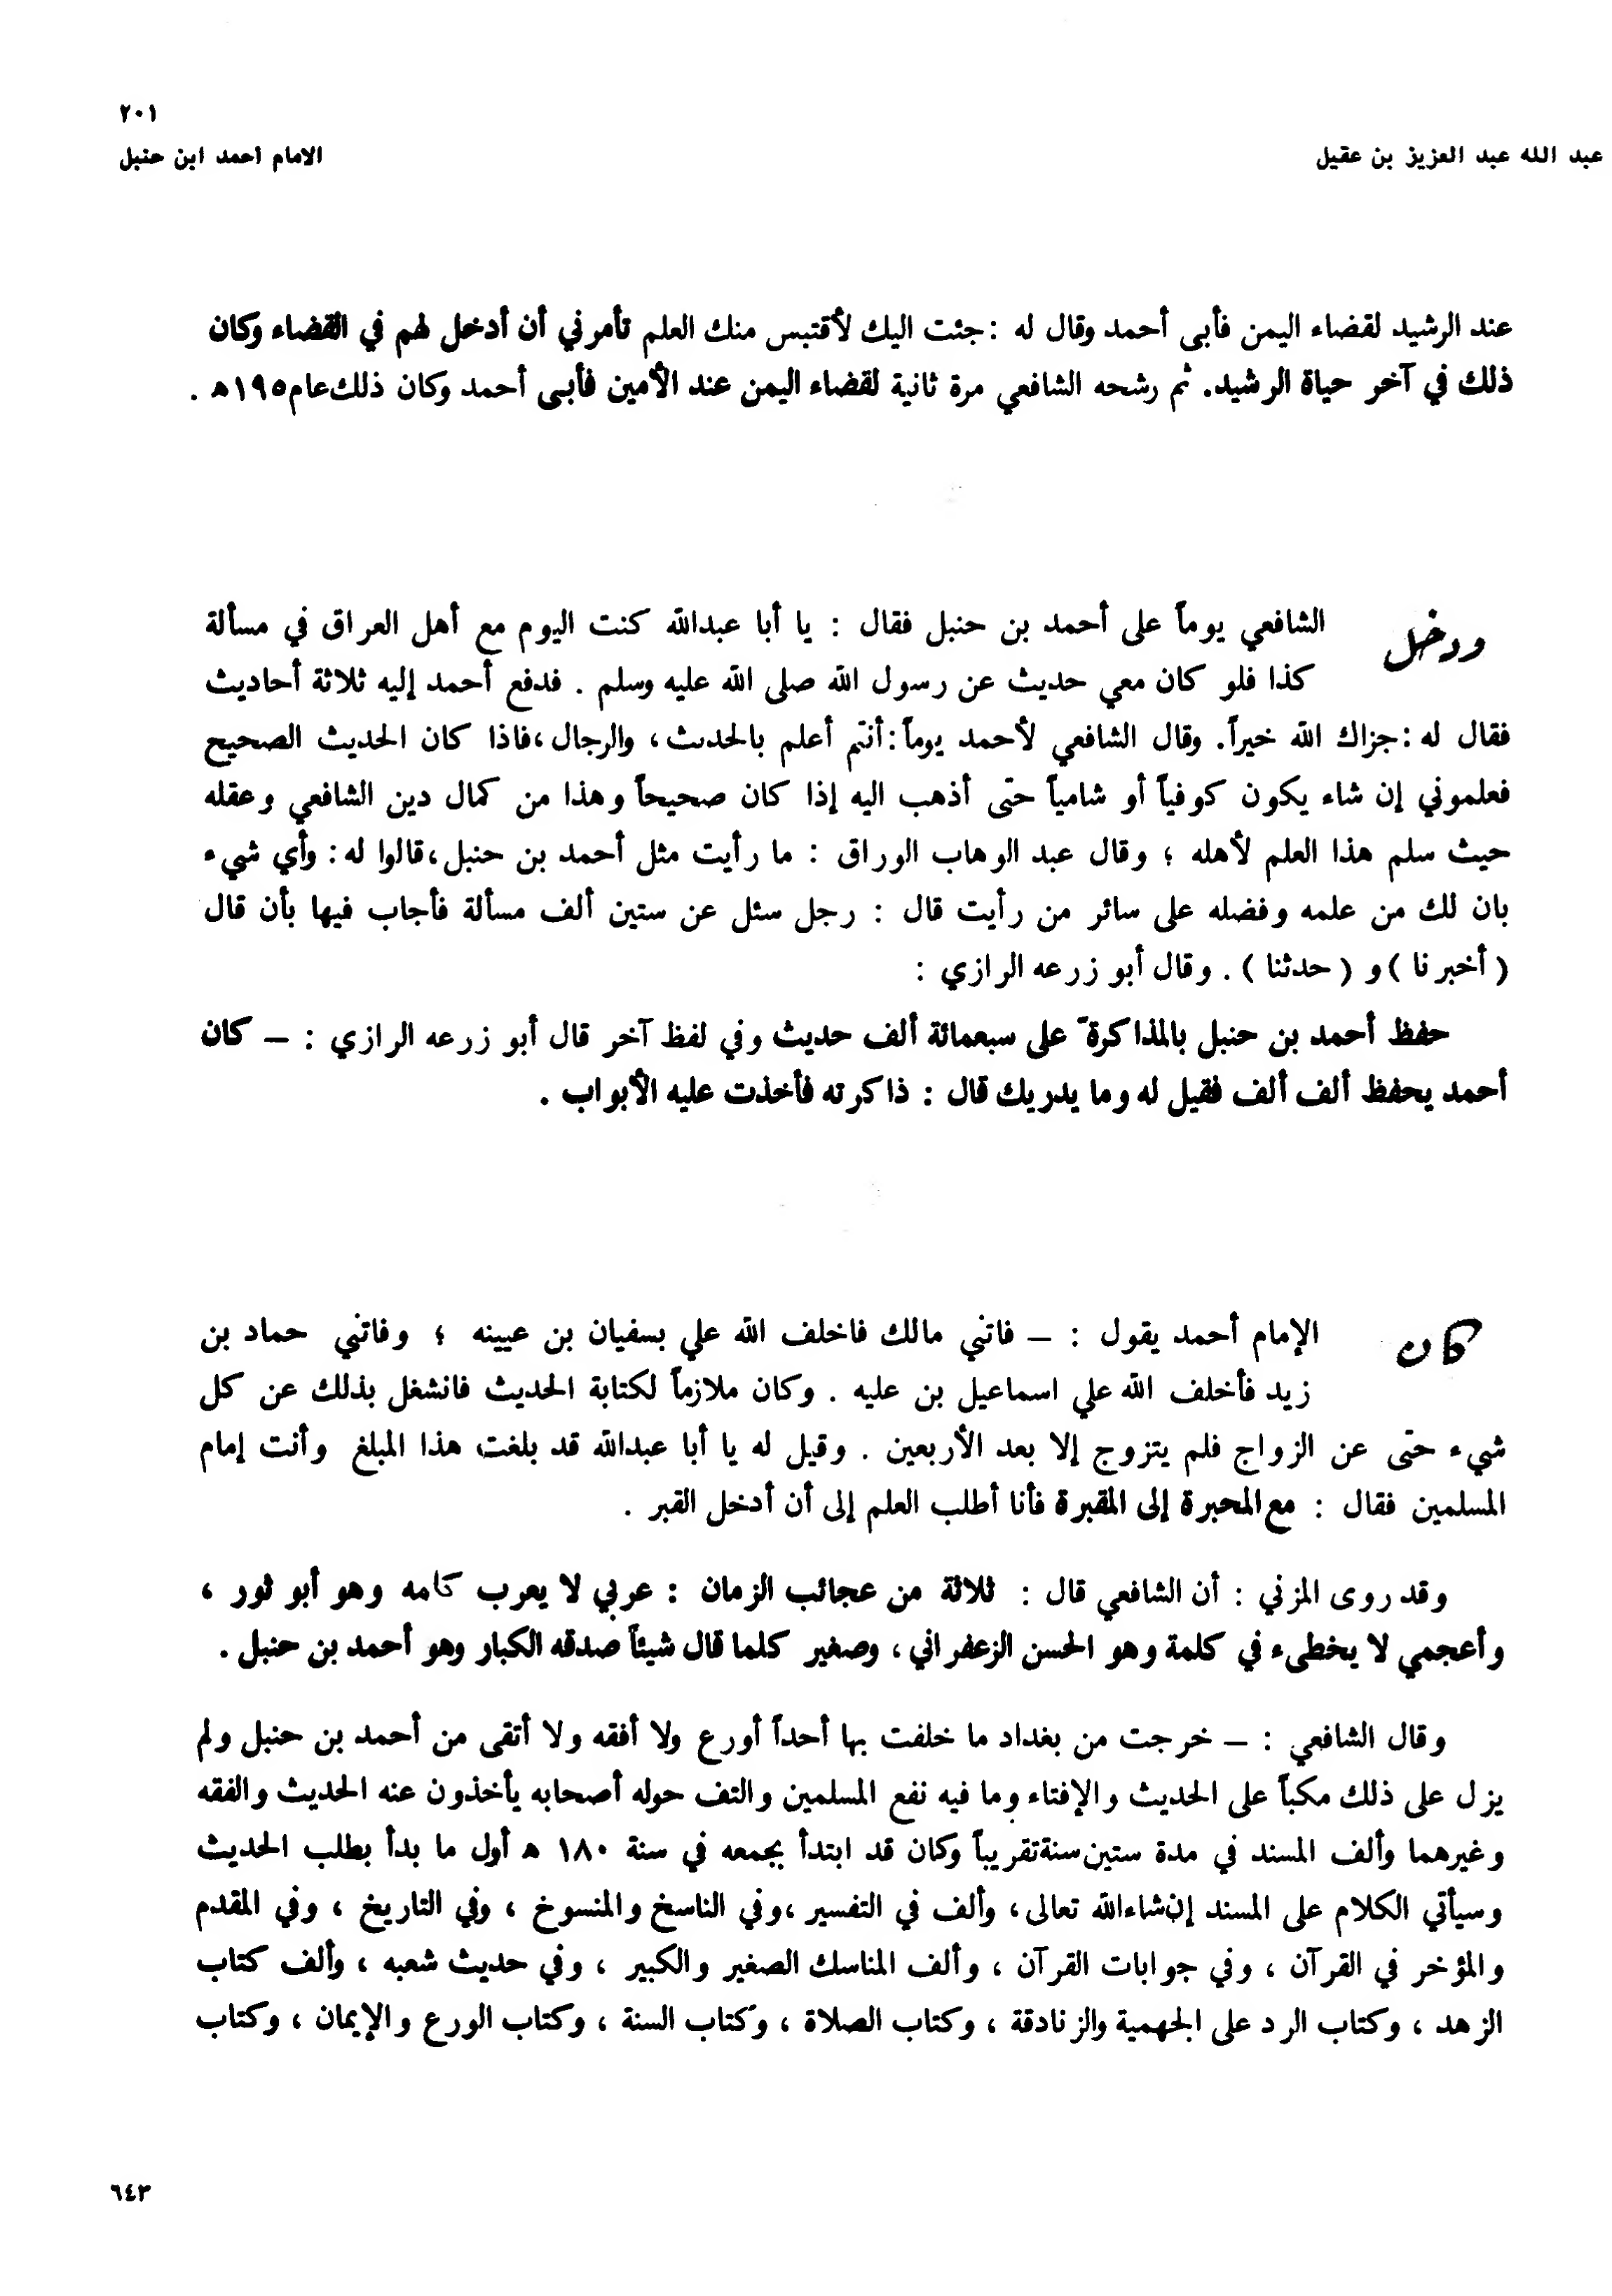 ٢٠١
عبد الله عبد العزيز بن عقيل
الامام احمد ابن حنبل
عند الرشيد لقضاء اليمن فأبى أحمد وقال له : جئت اليك لأقتبس منك العلم تأمرني أن أدخل لهم في القضاء وكان
ذلك في آخر حياة الرشيد. ثم رشحه الشافعي مرة ثانية لقضاء اليمن عند الأمين فأبى أحمد وكان ذلك عام ١٩٥ه .
ودخل الشافعي يوماً على أحمد بن حنبل فقال : يا أبا عبدالله كنت اليوم مع أهل العراق في مسألة
كذا فلو كان معي حديث عن رسول الله صلى الله عليه وسلم . فدفع أحمد إليه ثلاثة أحاديث
فقال له : جزاك الله خيراً. وقال الشافعي لأحمد يوماً : أنتم أعلم بالحديث ، والرجال ، فاذا كان الحديث الصحيح
فعلموني إن شاء يكون كوفياً أو شامياً حتى أذهب اليه إذا كان صحيحاً وهذا من كمال دين الشافعي وعقله
حيث سلم هذا العلم لأهله ؛ وقال عبد الوهاب الوراق : ما رأيت مثل أحمد بن حنبل ، قالوا له : وأي شيء
بان لك من علمه وفضله على سائر من رأيت قال : رجل سئل عن ستين ألف مسألة فأجاب فيها بأن قال
( أخبرنا ) و ( حدثنا ) . وقال أبو زرعه الرازي :
حفظ أحمد بن حنبل بالمذاكرة على سبعمائة ألف حديث وفي لفظ آخر قال أبو زرعه الرازي : – كان
أحمد يحفظ ألف ألف فقيل له وما يدريك قال : ذاكرته فأخذت عليه الأبواب .
كان الإمام أحمد يقول : – فاتني مالك فاخلف الله علي بسفيان بن عيينه ؛ وفاتني حماد بن
زيد فأخلف الله علي اسماعيل بن عليه . وكان ملازماً لكتابة الحديث فانشغل بذلك عن كل
شيء حتى عن الزواج فلم يتزوج إلا بعد الأربعين . وقيل له يا أبا عبدالله قد بلغت هذا المبلغ وأنت إمام
المسلمين فقال : مع المحبرة إلى المقبرة فأنا أطلب العلم إلى أن أدخل القبر .
وقد روى المزني : أن الشافعي قال : ثلاثة من عجائب الزمان : عربي لا يعرب كامه وهو أبو ثور ،
وأعجمي لا يخطىء في كلمة وهو الحسن الزعفراني ، وصغير كلما قال شيئاً صدقه الكبار وهو أحمد بن حنبل .
وقال الشافعي : – خرجت من بغداد ما خلفت بها أحداً أورع ولا أفقه ولا أتقى من أحمد بن حنبل ولم
يزل على ذلك مكباً على الحديث والإفتاء وما فيه نفع المسلمين والتف حوله أصحابه يأخذون عنه الحديث والفقه
وغيرهما وألف المسند في مدة ستين سنة تقريباً وكان قد ابتدأ بجمعه في سنة ١٨٠ ه أول ما بدأ بطلب الحديث
وسيأتي الكلام على المسند إن شاء الله تعالى ، وألف في التفسير ، وفي الناسخ والمنسوخ ، وفي التاريخ ، وفي المقدم
والمؤخر في القرآن ، وفي جوابات القرآن ، وألف المناسك الصغير والكبير ، وفي حديث شعبه ، وألف كتاب
الزهد ، وكتاب الرد على الجهمية والزنادقة ، وكتاب الصلاة ، وكتاب السنة ، وكتاب الورع والإيمان ، وكتاب
٦٤٣